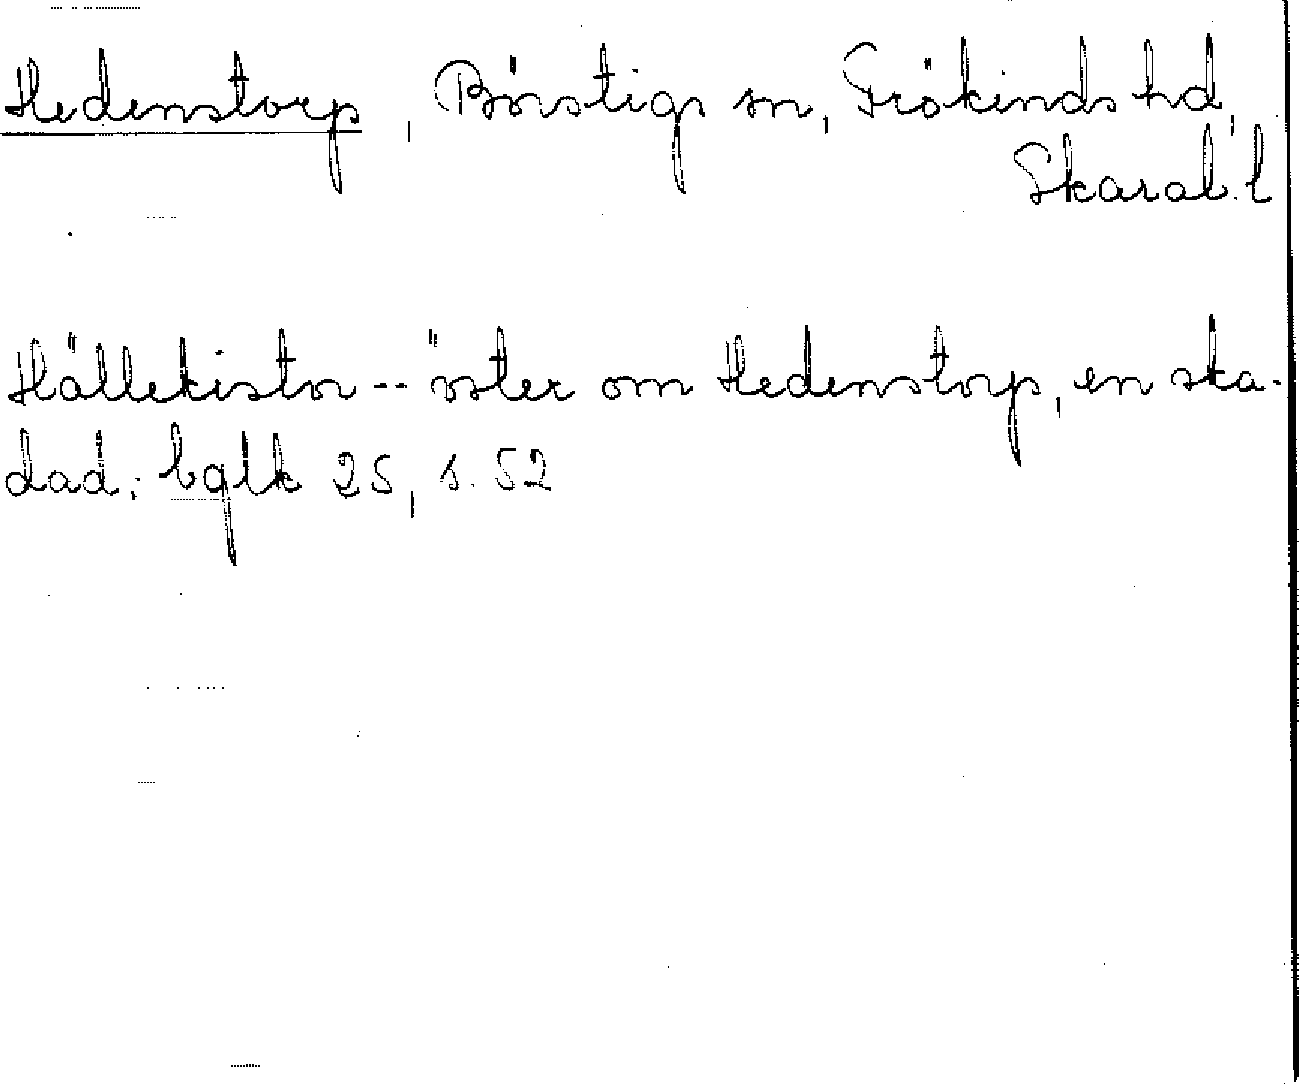 Hedenstorp, Börstigs sn, Frökinds hd,
Skarab. l
Hällekistor -- öster om Hedenstorp, en ska-
dad; bglk 25, s. 52